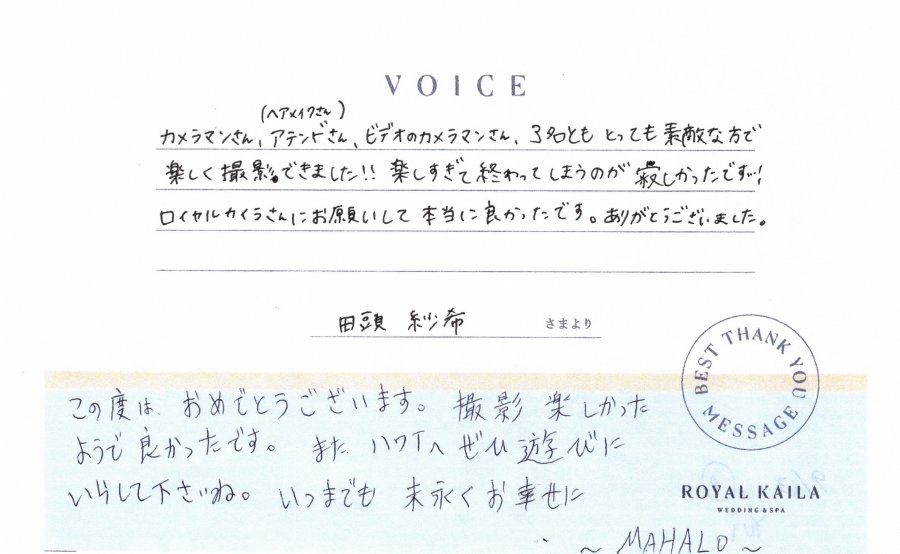 VOICE
(ヘアメイクさん)
カメラマンさん、アテンドさん、ビデオのカメラマンさん、3名とも とっても素敵な方で
楽しく撮影できました!! 楽しすぎて終わってしまうのが 寂しかったです!!
ロイヤルカイラさんにお願いして 本当に良かったです。ありがとうございました。
田頭 紗希 さまより
BEST THANK YOU MESSAGE
この度は、おめでとうございます。 撮影 楽しかった
ようで 良かったです。 また ハワイへ ぜひ 遊びに
いらして下さいね。 いつまでも 末永くお幸せに
ROYAL KAILA
WEDDING & SPA
~ MAHALO ~